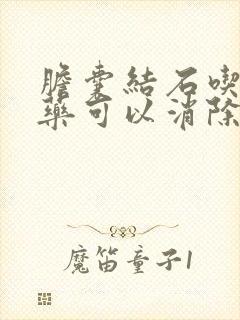 膽囊結石喫
藥可以消除
魔笛童子1